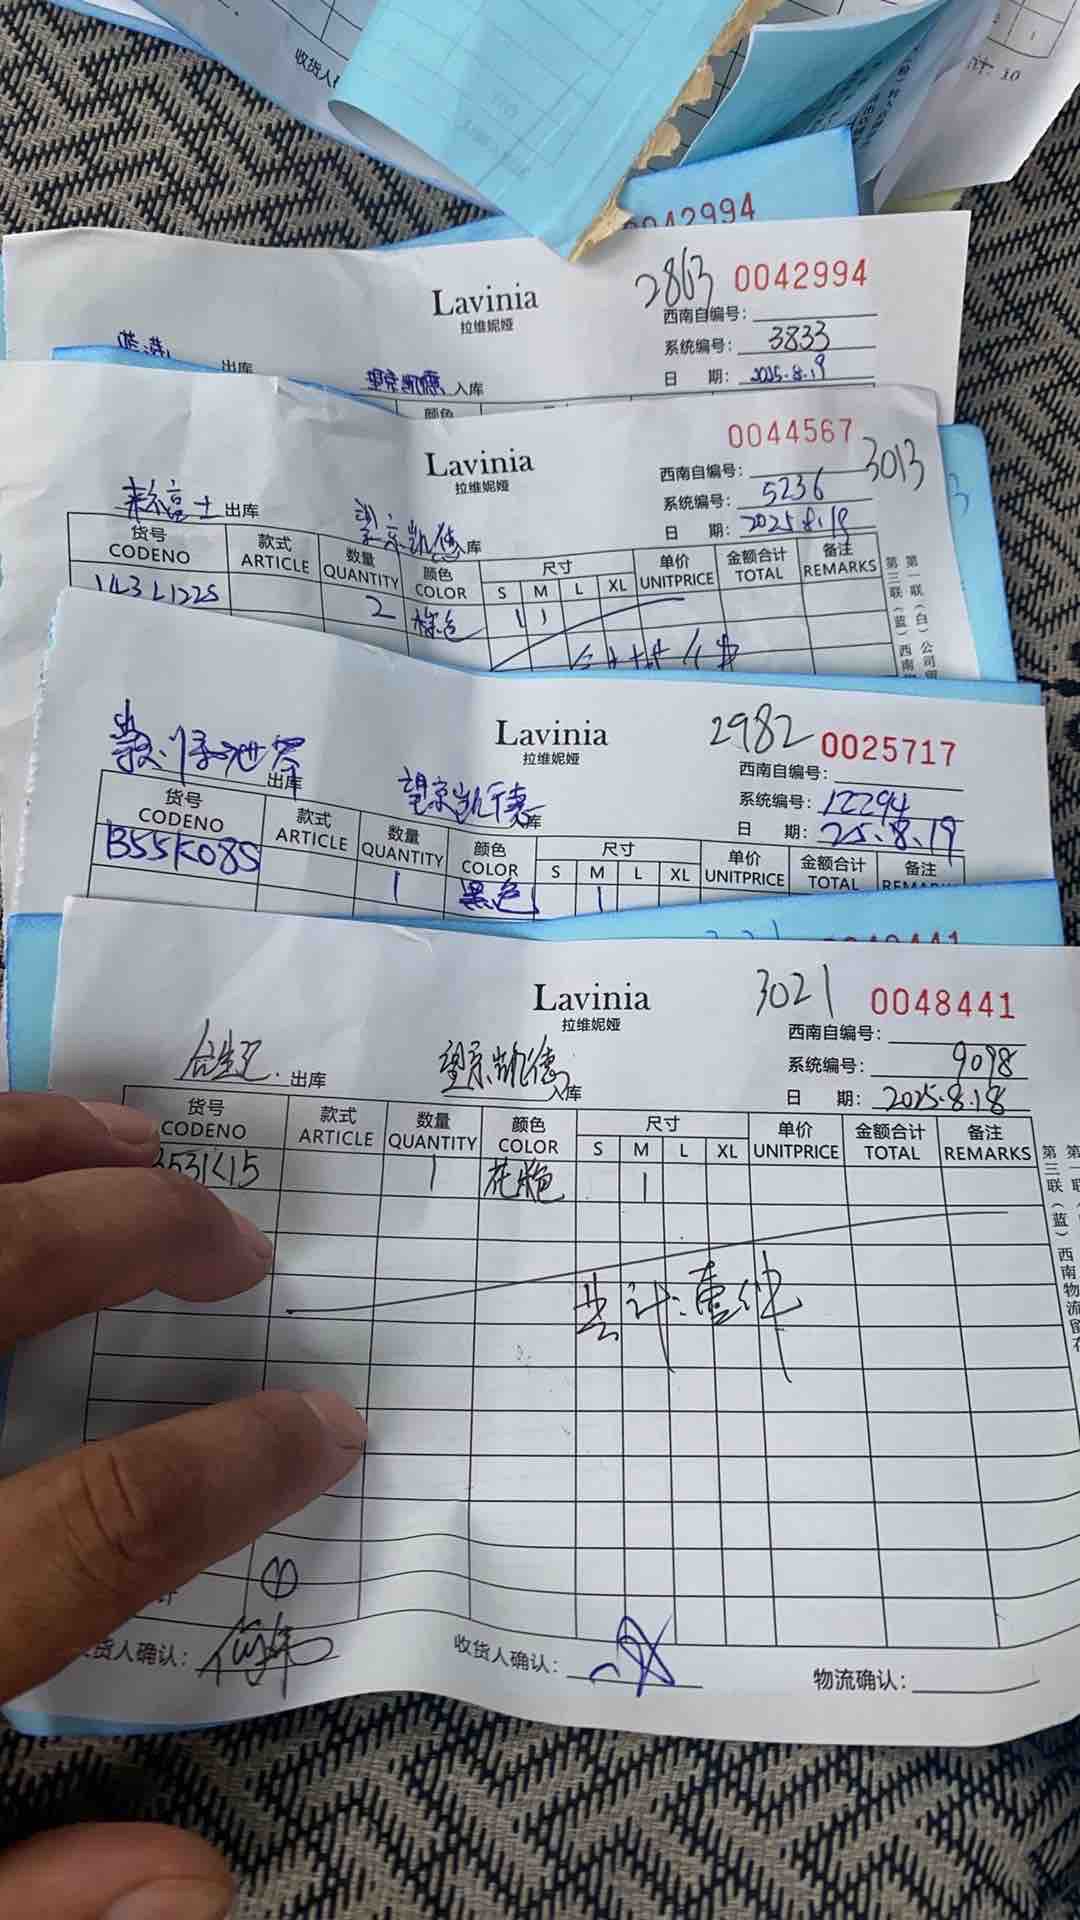 收货人
计: 10
0042994
2863 0042994
Lavinia
拉维妮娅
西南自编号:
系统编号: 3833
日 期: 2025.8.19
出库
望京凯德 入库
颜色
0044567
3013
Lavinia
拉维妮娅
西南自编号:
系统编号: 5236
日 期: 2025.8.19
出库
望京凯德 入库
货号 款式 数量 颜色 尺寸 单价 金额合计 备注
CODENO ARTICLE QUANTITY COLOR S M L XL UNITPRICE TOTAL REMARKS
143L122S 2 棕色 1 1
第一联(白)公司
第三联(蓝)西南
2982 0025717
Lavinia
拉维妮娅
西南自编号:
系统编号: 12294
日 期: 25.8.19
出库
望京凯德 入库
货号 款式 数量 颜色 尺寸 单价 金额合计 备注
CODENO ARTICLE QUANTITY COLOR S M L XL UNITPRICE TOTAL
B55K08S 1 黑色 1
3021 0048441
Lavinia
拉维妮娅
西南自编号:
系统编号: 9098
日 期: 2025.8.18
合生汇 出库
望京凯德 入库
货号 款式 数量 颜色 尺寸 单价 金额合计 备注
CODENO ARTICLE QUANTITY COLOR S M L XL UNITPRICE TOTAL REMARKS
531K15 1 花色 1
第三联(蓝)西南物流留存
共计:壹件
计 ①
货人确认:
收货人确认:
物流确认: